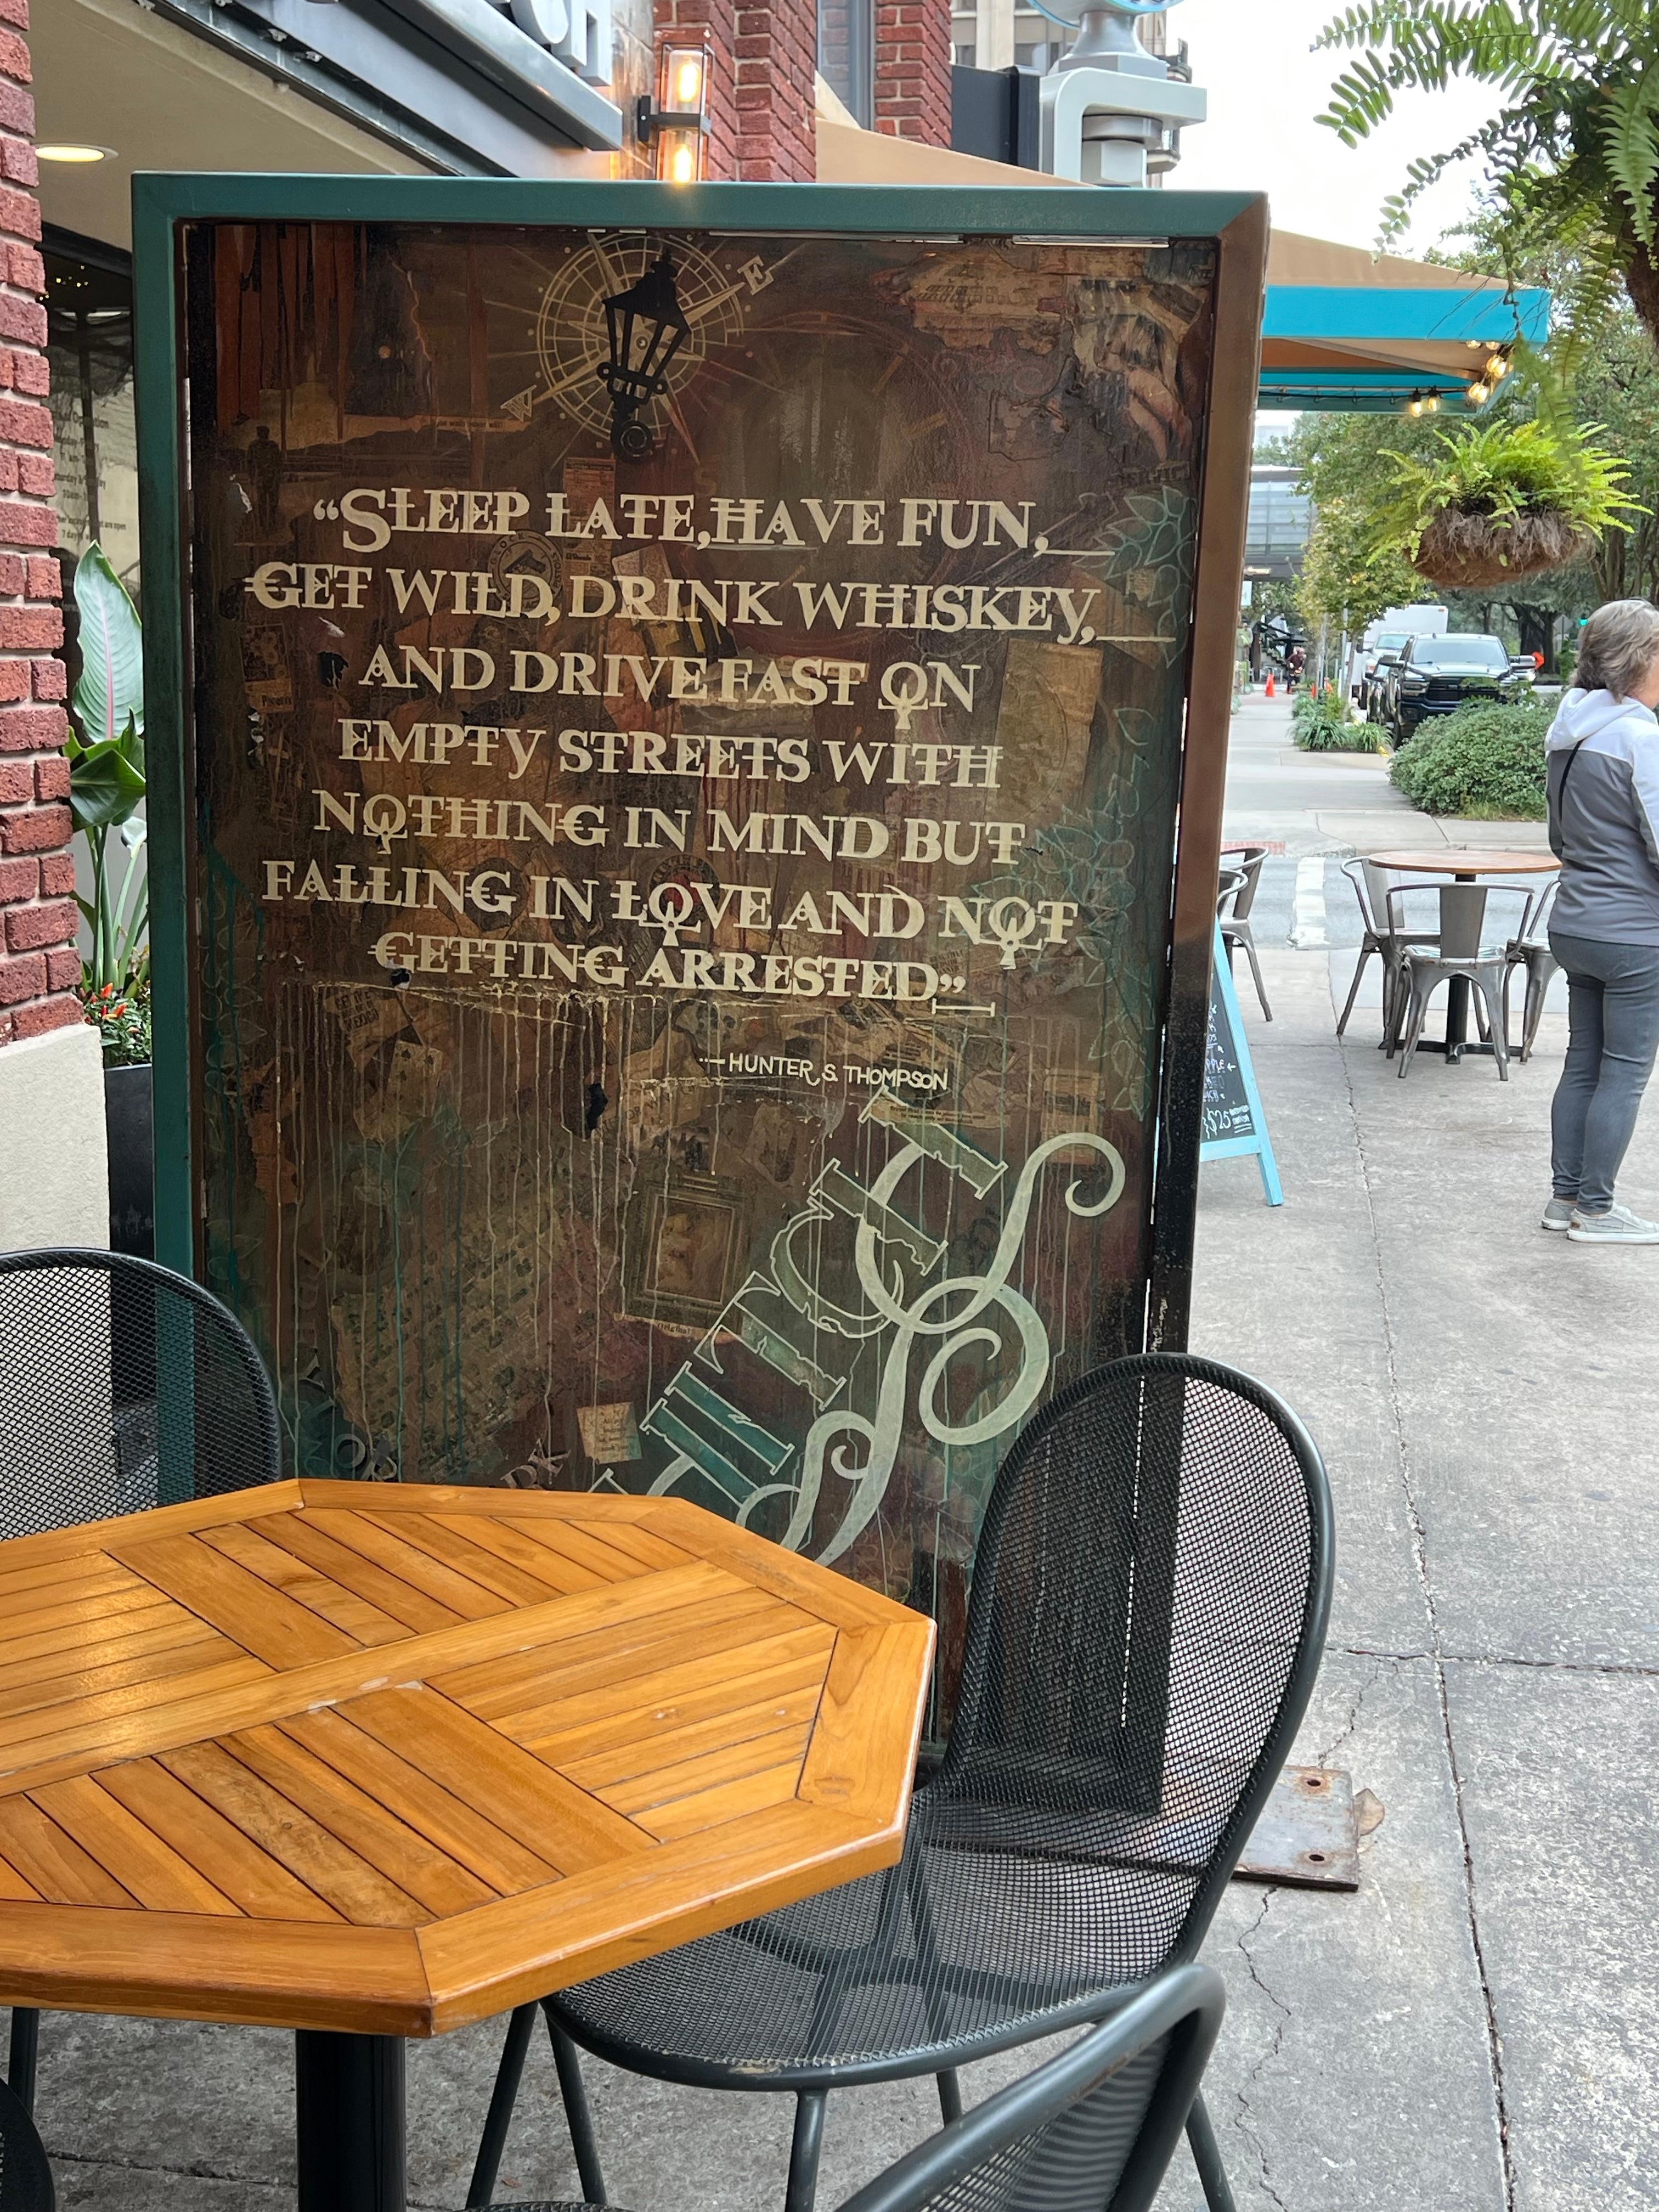 E
W
“SLEEP LATE, HAVE FUN,
GET WILD, DRINK WHISKEY,
AND DRIVE FAST ON
EMPTY STREETS WITH
NOTHING IN MIND BUT
FALLING IN LOVE AND NOT
GETTING ARRESTED”
—HUNTER S. THOMPSON
$25